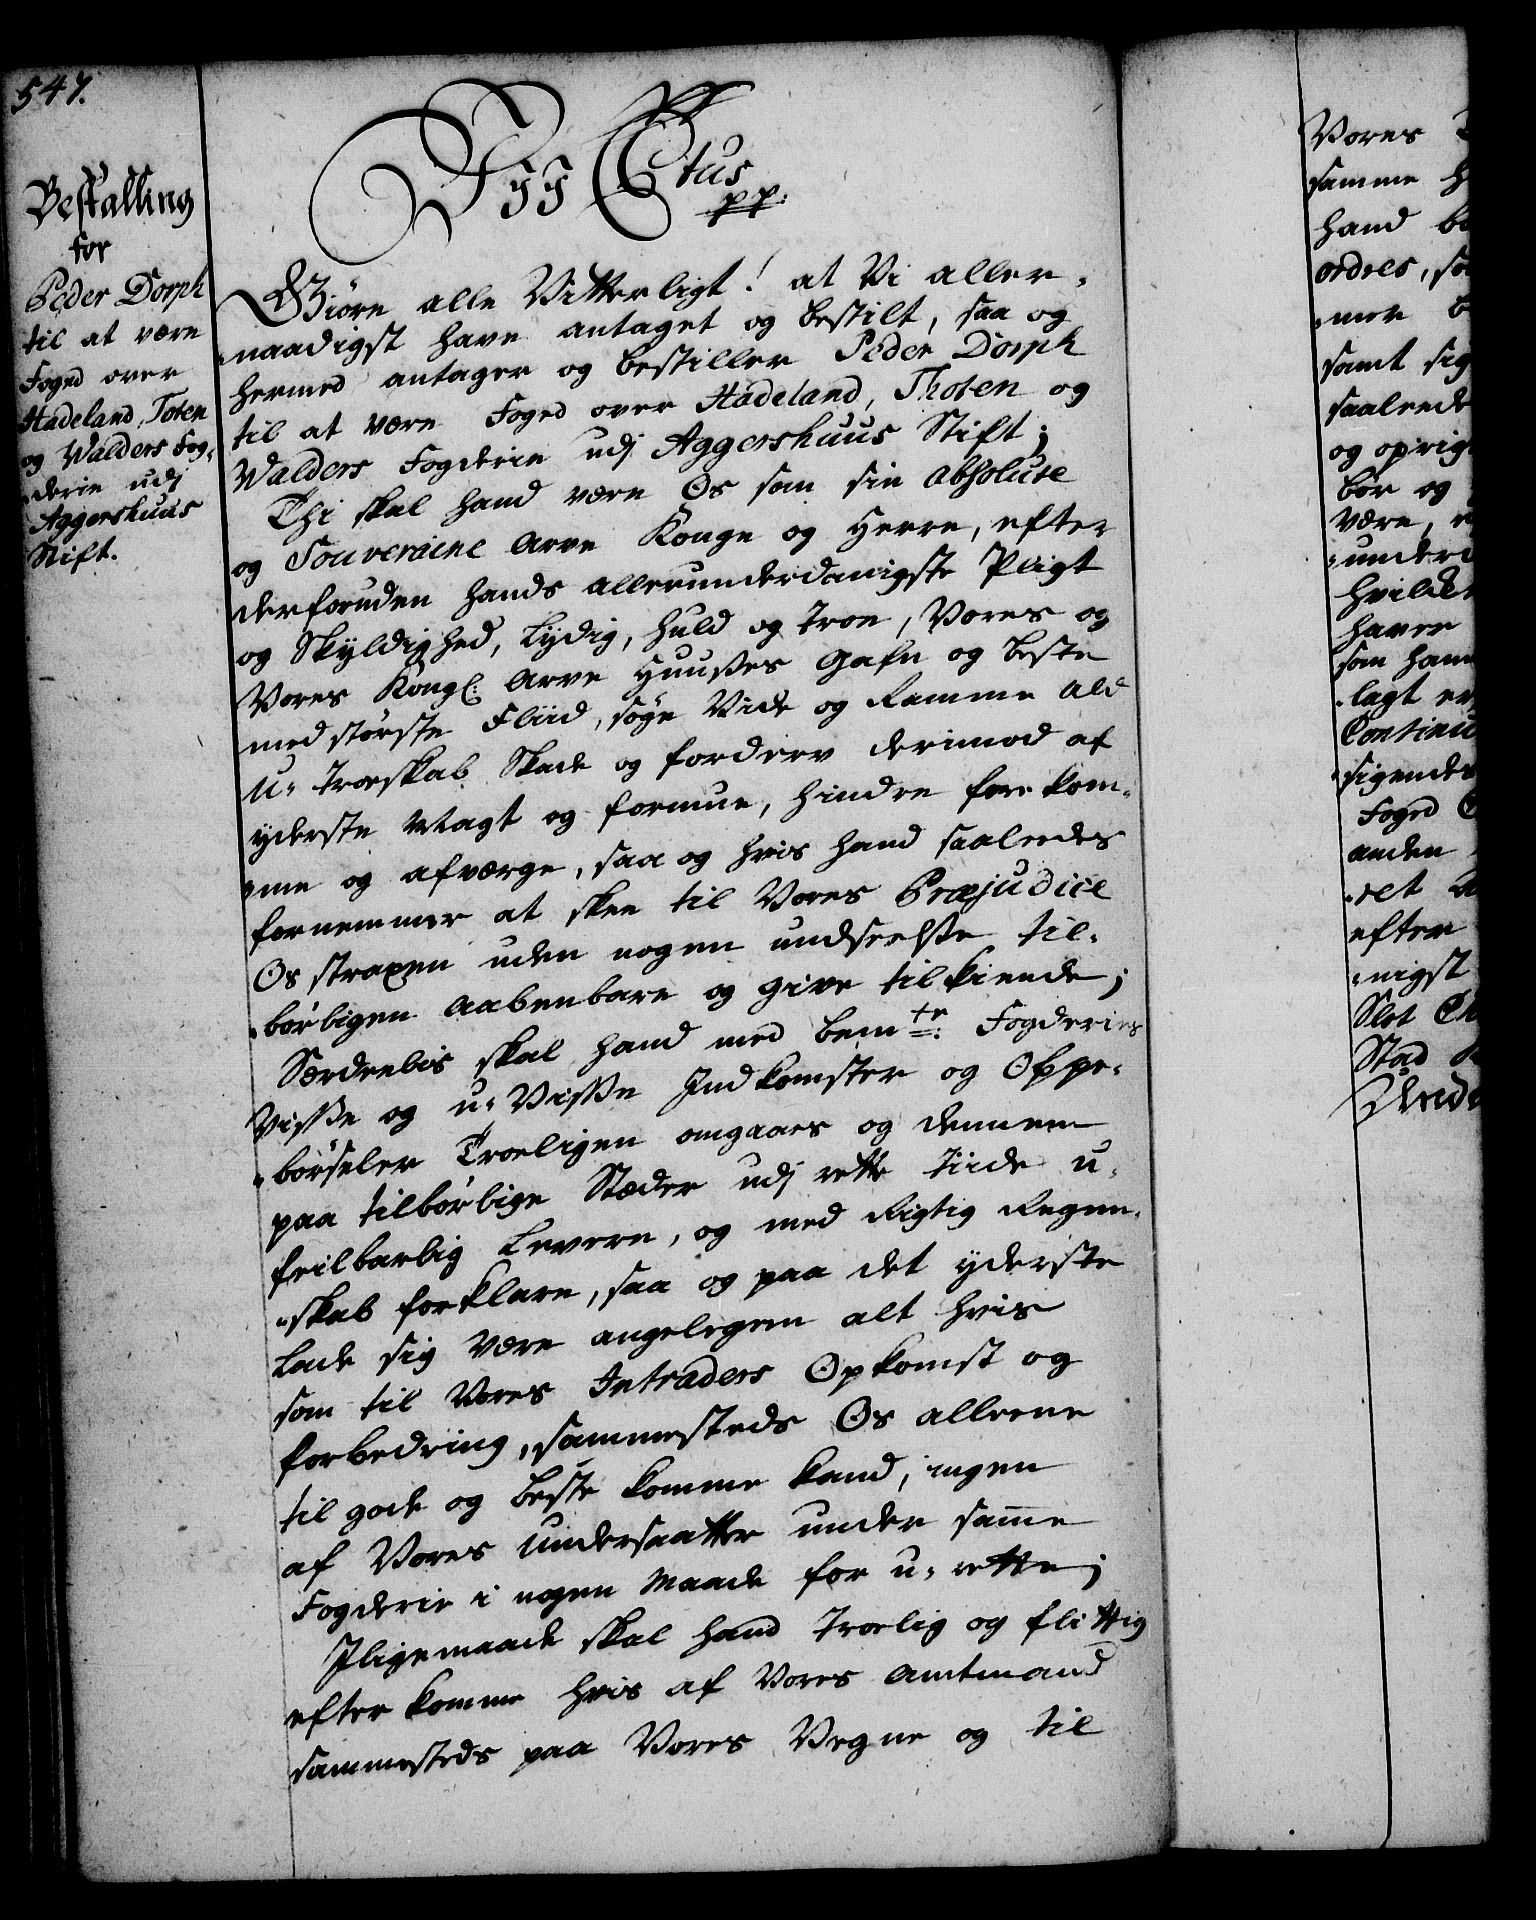 547.
Bestalling
for
Peder Dorph
til at være
Foged over
Hadeland, Toten
og Walders Fog-
derie udj
Aggershuus
Stift.
Vii C6tus
pp.
Giøre alle Vitterligt! at Vi aller-
naadigst have antaget og bestilt, saa og
hermed antager og bestiller Peder Dorph
til at være Foged over Hadeland, Thoten og
Walders Fogderie udj Aggershuus Stift;
Thi skal hand være Os som sin absolute
og Souveraine Arve Konge og Herre, efter
derforuden hands allerunderdanigste Pligt
og Skyldighed, lydig, huld og troe, Vores og
Vores Kongl: Arve Huuses Gafn og beste
med største Fliid, søge Vide og Ramme ald
U-troeskab Skade og forderv derimod af
yderste Magt og formue, hindre forekom-
me og afværge, saa og hvis hand saaledes
fornemmer at skee til Vores Præjudice
Os straxen uden nogen undseelse til-
børligen aabenbare og give tilkiende;
Særdeelis skal hand med bemte: Fogderies
Visse og u-Visse Indkomster og Oppe-
børseler Troeligen omgaaes og dennem
paa tilbørlige Stæder udj rette tiide u-
feilbarlig levere, og med Rigtig Regen-
skab forklare, saa og paa det yderste
lade sig være angelegen alt hvis
som til Vores Intraders Opkomst og
forbedring, sammesteds Os alleene
til gode og beste komme kand, ingen
af Vores Undersaatter under same
Fogderie i nogen Maade for u-rette;
Iligemaade skal hand troelig og flittig
efterkomme hvis af Vores Amtmand
sammesteds paa Vores Vegne og til
Vores
samme
hand
ordres,
samt sig
og oprig
bør og
være,
hvilket
haver
som
lagt
Continu
sigendes
Foged
anden
efter
nigst
Slot
Stad